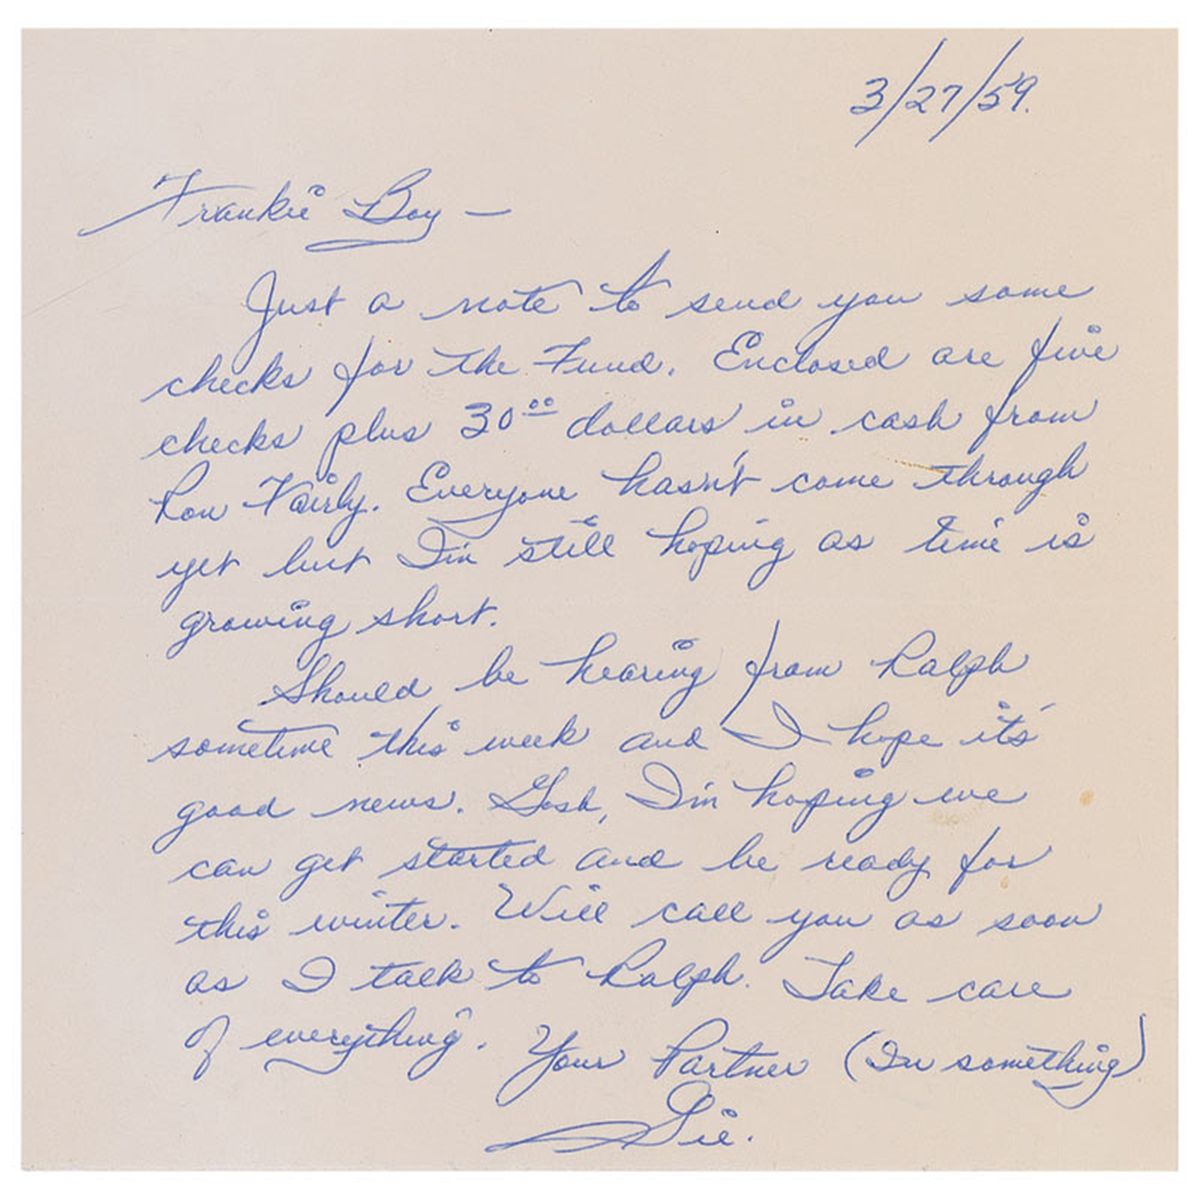 3/27/59.
Frankie Boy —
Just a note to send you some
checks for the Fund. Enclosed are five
checks plus 30⁰⁰ dollars in cash from
Ron Fairly. Everyone hasn't come through
yet but I'm still hoping as time is
growing short.
Should be hearing from Ralph
sometime this week and I hope it's
good news. Gosh, I'm hoping we
can get started and be ready for
this winter. Will call you as soon
as I talk to Ralph. Take care
of everything. Your Partner (In something)
Gil.